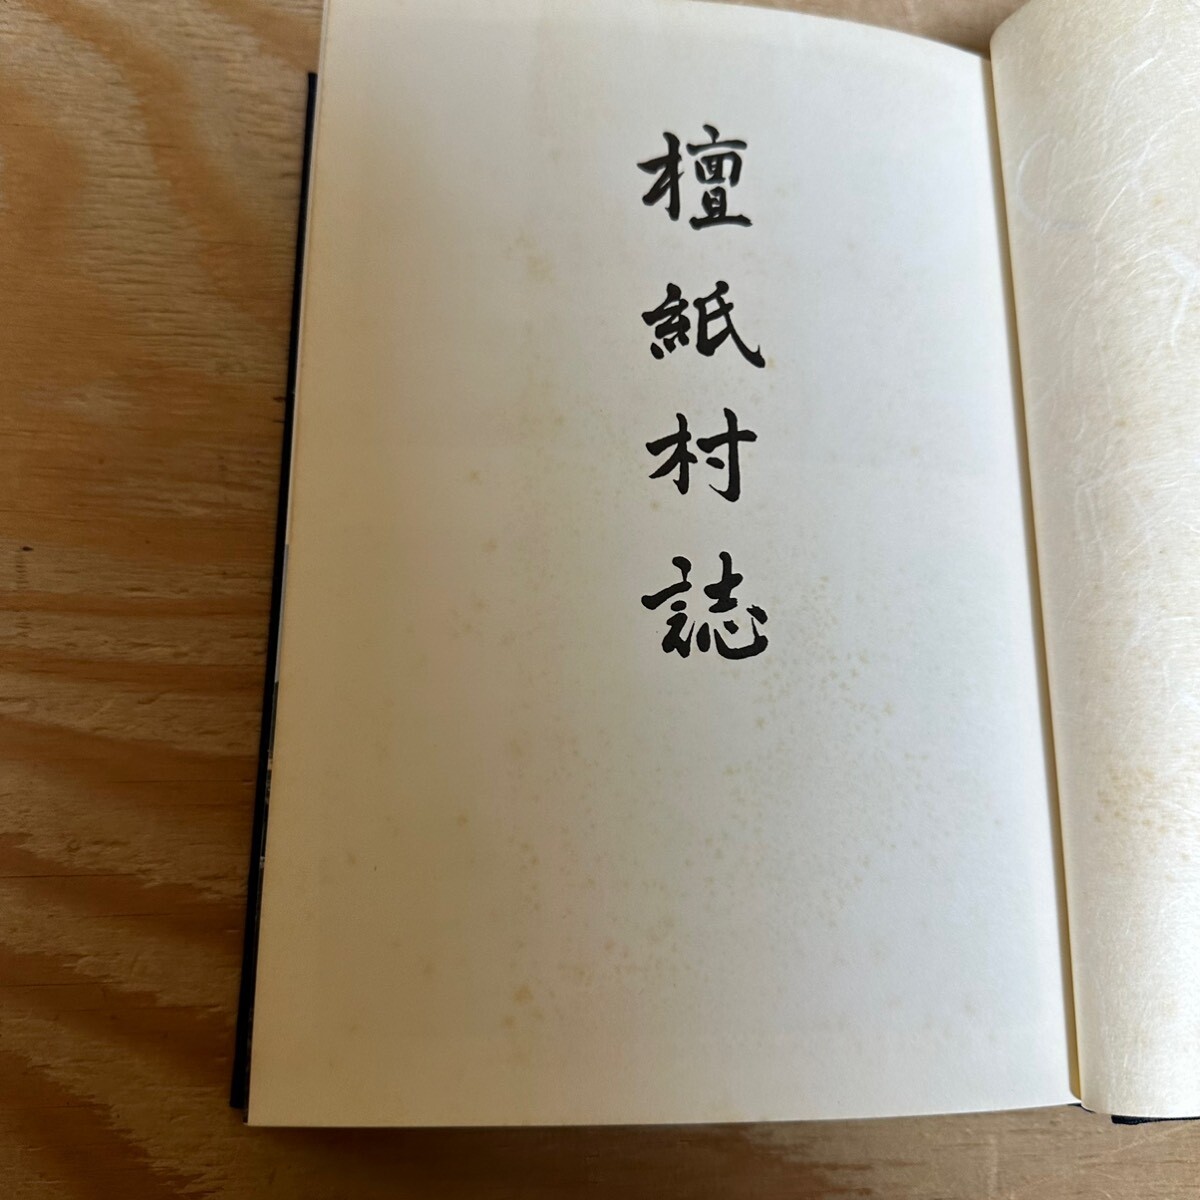 檀紙村誌